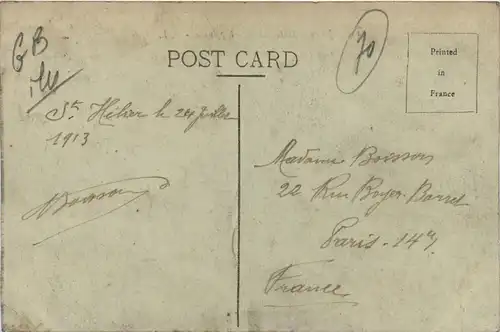 GB
70
POST CARD
Printed
in
France
St Hélier le 24 Juillet
1913
Boisson
Madame Boisson
22 Rue Boyer-Barret
Paris-14e
France